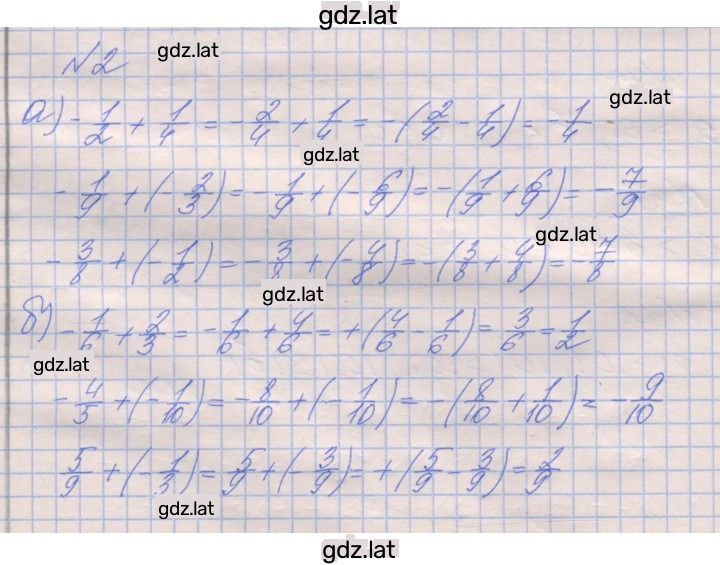 gdz.lat
№2 gdz.lat
gdz.lat
а) -1/2 + 1/4 = -2/4 + 1/4 = -(2/4 - 1/4) = -1/4
gdz.lat
-1/9 + (-2/3) = -1/9 + (-6/9) = -(1/9 + 6/9) = -7/9
gdz.lat
-3/8 + (-1/2) = -3/8 + (-4/8) = -(3/8 + 4/8) = -7/8
gdz.lat
б) -1/6 + 2/3 = -1/6 + 4/6 = +(4/6 - 1/6) = 3/6 = 1/2
gdz.lat
-4/5 + (-1/10) = -8/10 + (-1/10) = -(8/10 + 1/10) = -9/10
5/9 + (-1/3) = 5/9 + (-3/9) = +(5/9 - 3/9) = 2/9
gdz.lat
gdz.lat